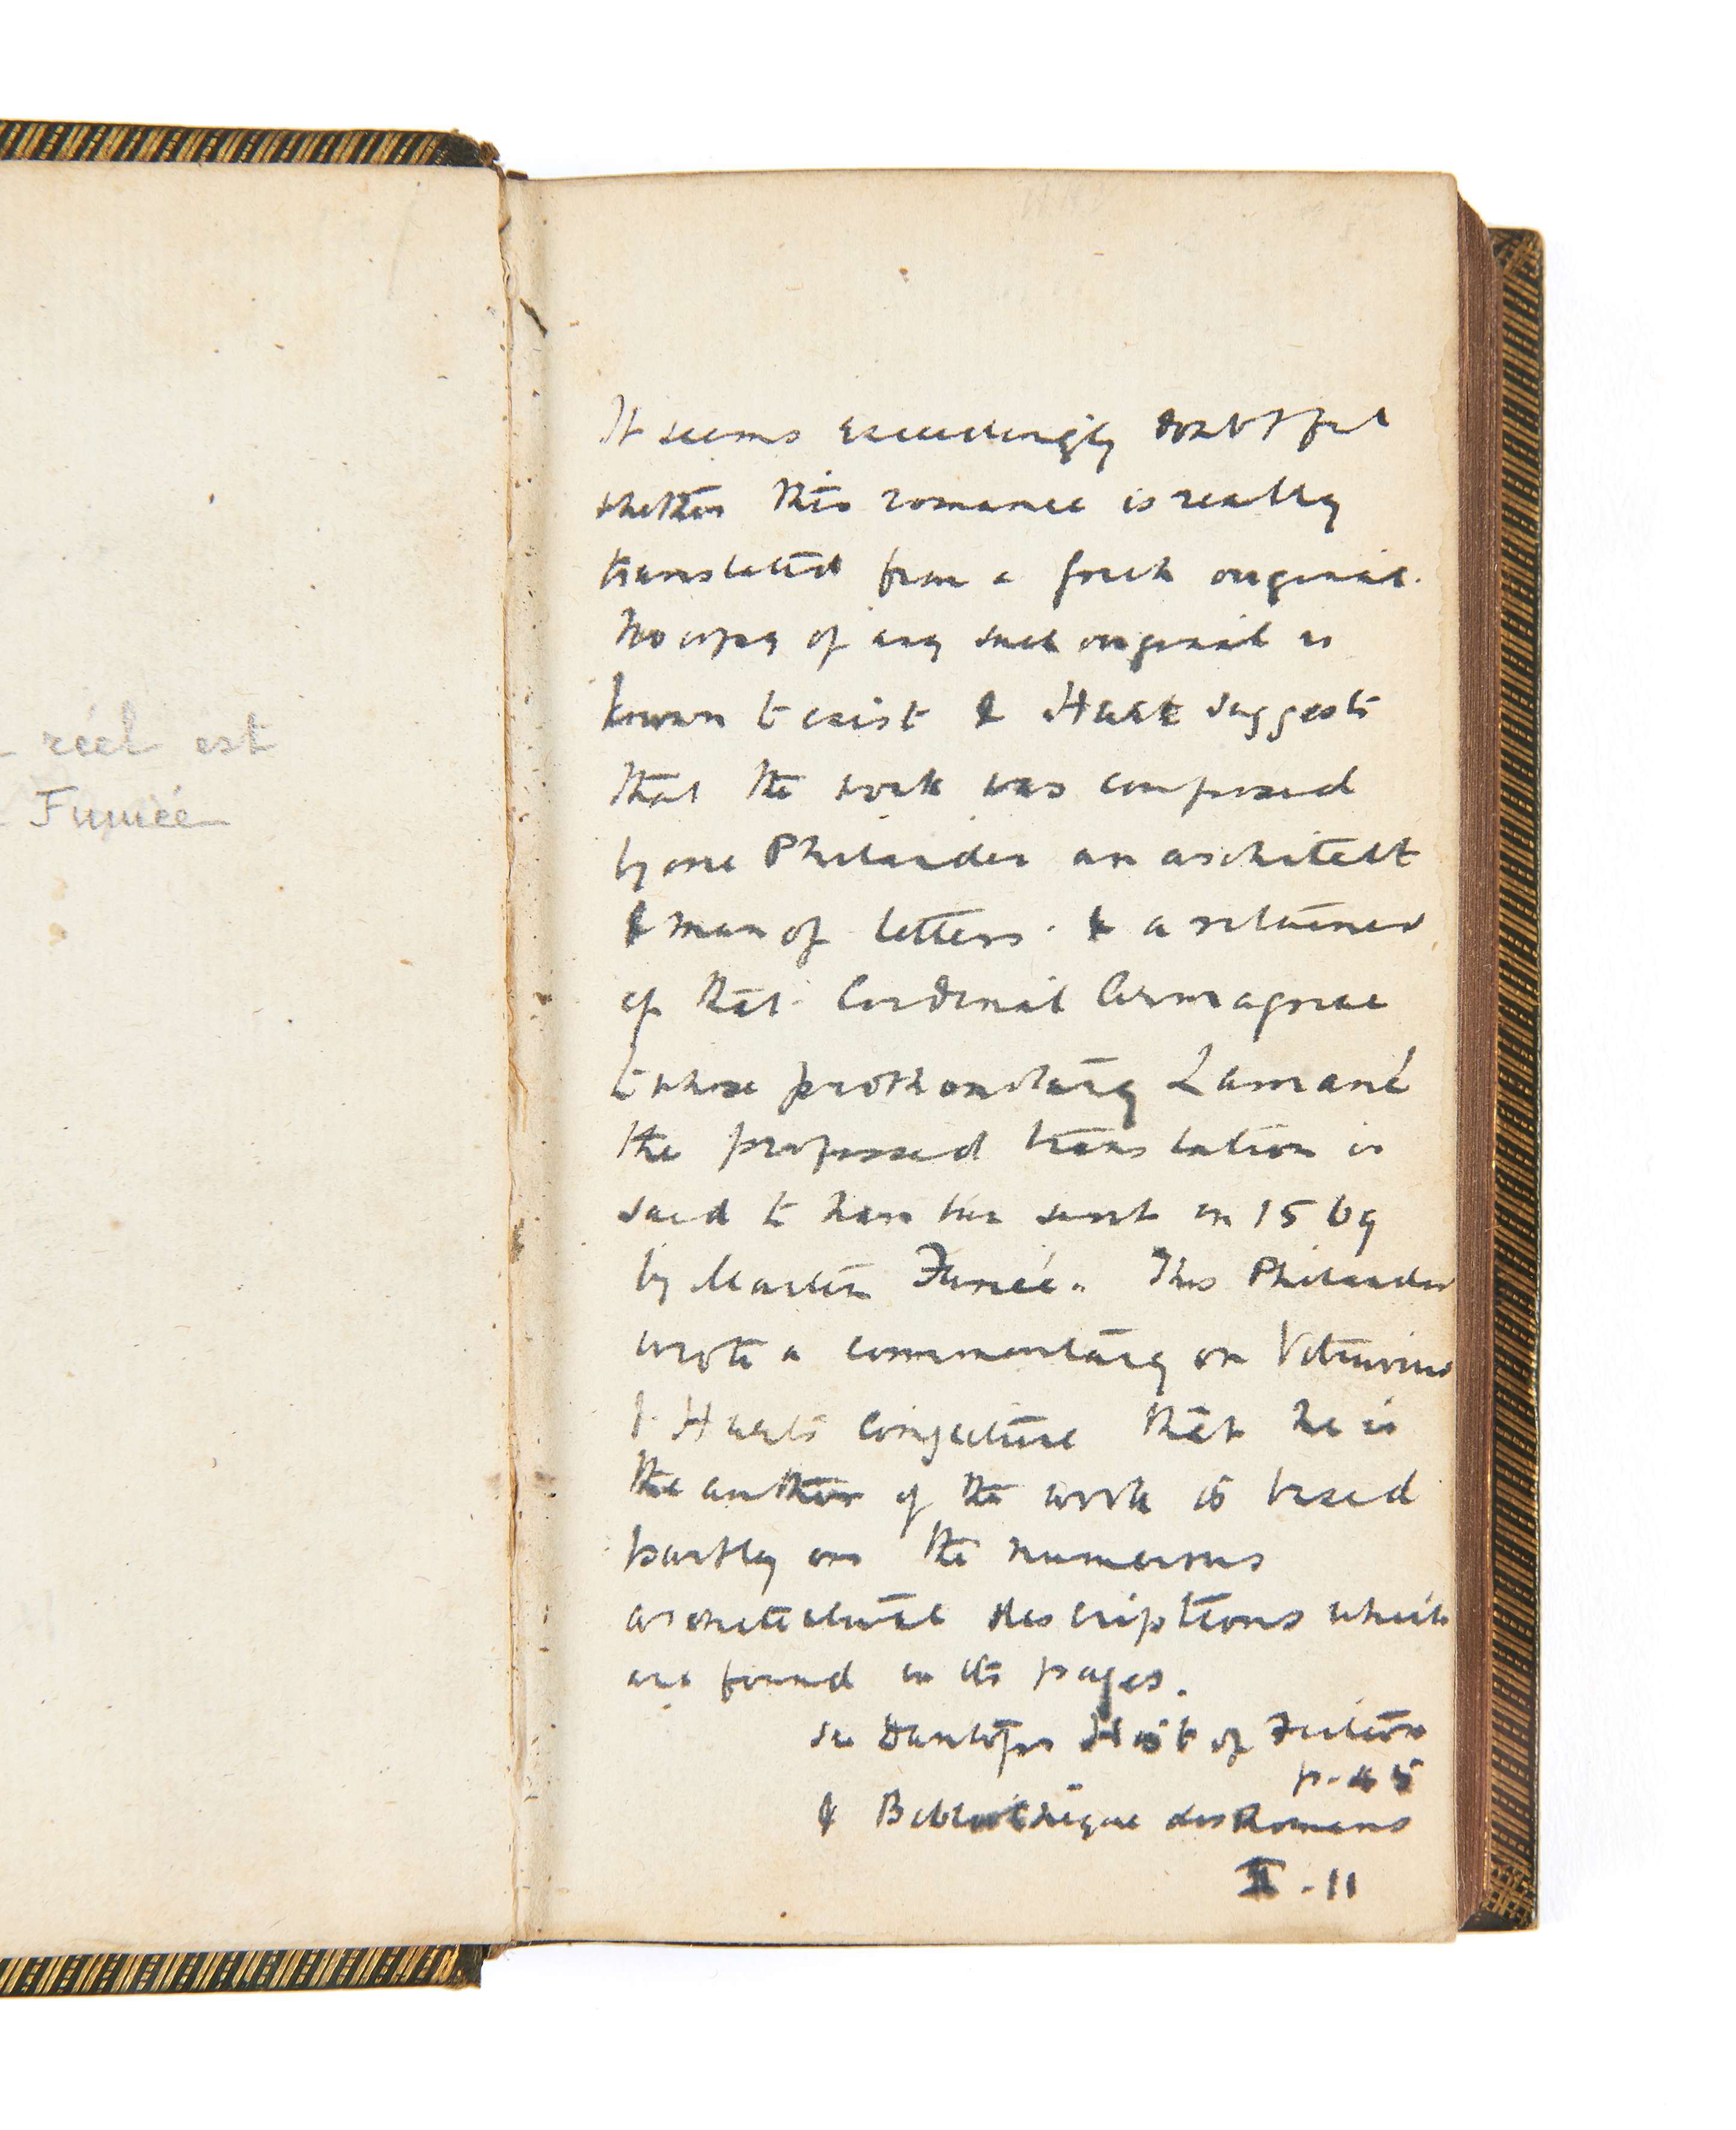 réel est
Fumée
It seems exceedingly doubtful
whether this romance is really
translated from a Greek original.
No copy of any such original is
known to exist & Huet suggests
that the work was composed
by one Philander an architect
& man of letters & a retainer
of that Cardinal Armagnac
to whose prothonotary Lamané
the professed translation is
said to have been sent in 1569
by Martin Fumée. This Philander
wrote a commentary on Vitruvius
& Huet's conjecture that he is
the author of the work is based
partly on the numerous
architectural descriptions which
are found in its pages.
See Dunlop's Hist of Fiction
p. 45
& Bibliothèque des Romans
II - 11